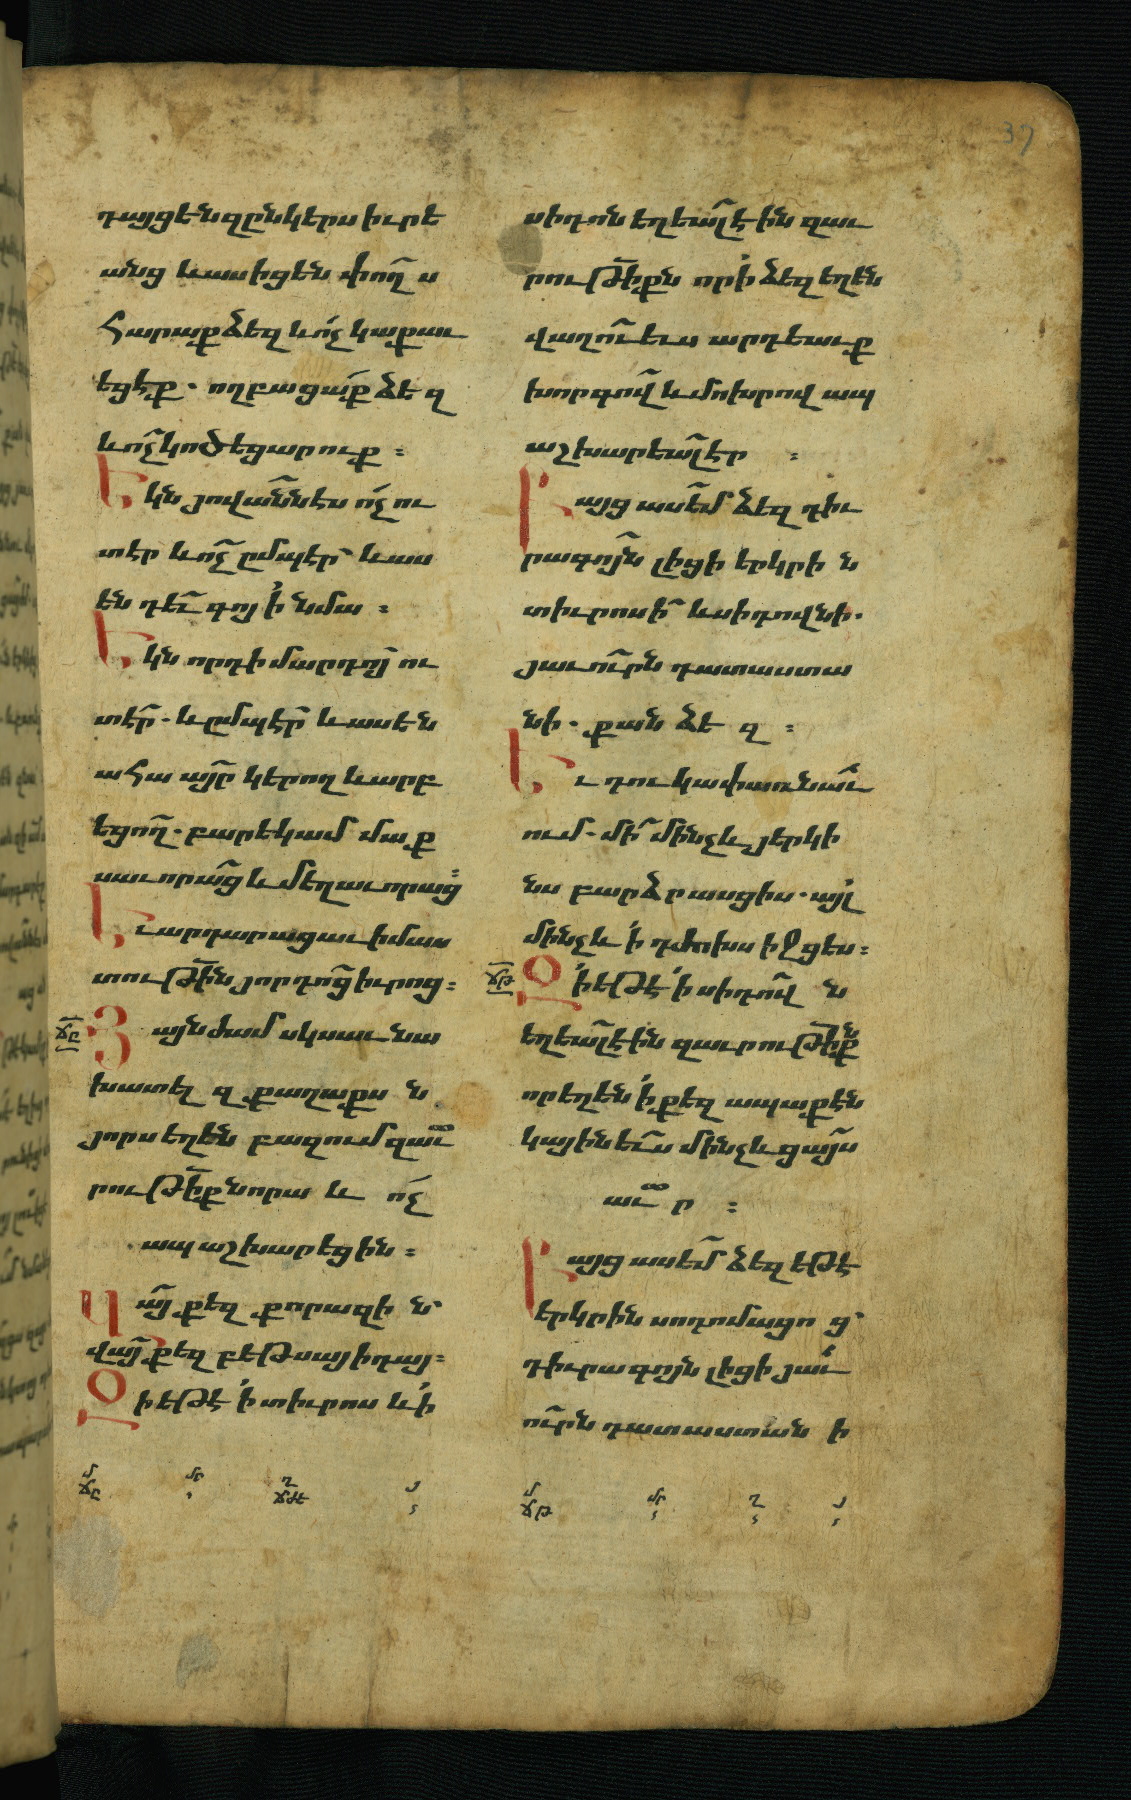 37
դայցեն զընկերս իւրե
անց և ասիցեն փող՟ս
հարաք ձեզ և ոչ կաքաւ
եցէք. ողբացաք ձեզ
և ոչ կոծեցարուք :
Եկն յովաննէս ոչ ու
տէր և ոչ ըմպէր և աս
են դեւ գոյ ի նմա :
Եկն որդի մարդոյ ու
տէր. և ըմպէր և ասեն
ահա այր կերող և արբ
եցող. բարեկամ մաք
սաւորաց և մեղաւորաց
Եւ արդարացաւ իմաս
տութի՟ն յորդոց իւրոց :
ճը Յայնժամ սկսաւ նա
խատել զքաղաքսն
յորս եղեն բազում զաւ
րութի՟ք նորա և ոչ
ապաշխարեցին :
Վայ քեզ քորազին
վայ քեզ բեթսայիդայ :
Զի եթէ ի տիւրոս և ի
մ մր ղ յ
ճը ճժէ
սիդոն եղեալ էին զաւ
րութի՟քն որ ի ձեզ եղեն
վաղու ևս արդեաւք
խորգով և մոխրով ապ
աշխարեալ էր :
Բայց ասեմ ձեզ դիւ
րագոյն լիցի երկրին
տիւրոսի և սիդովնի.
յաւուրն դատաստա
նի. քան ձեզ :
Եւ դու կափառնաւ
ում. մի մինչև յերկի
նս բարձրասցիս. այլ
մինչև ի դժոխս իջցես :
ճթ Զի եթէ ի սիդովն
եղեալ էին զաւրութի՟քն
որ եղեն ի քեզ ապաքէն
կային ևս մինչև ցայս
աւր :
Բայց ասեմ ձեզ եթէ
երկրին սոդոմացոց
դիւրագոյն լիցի յաւ
ուրն դատաստանի
մ մր ղ յ
ճթ